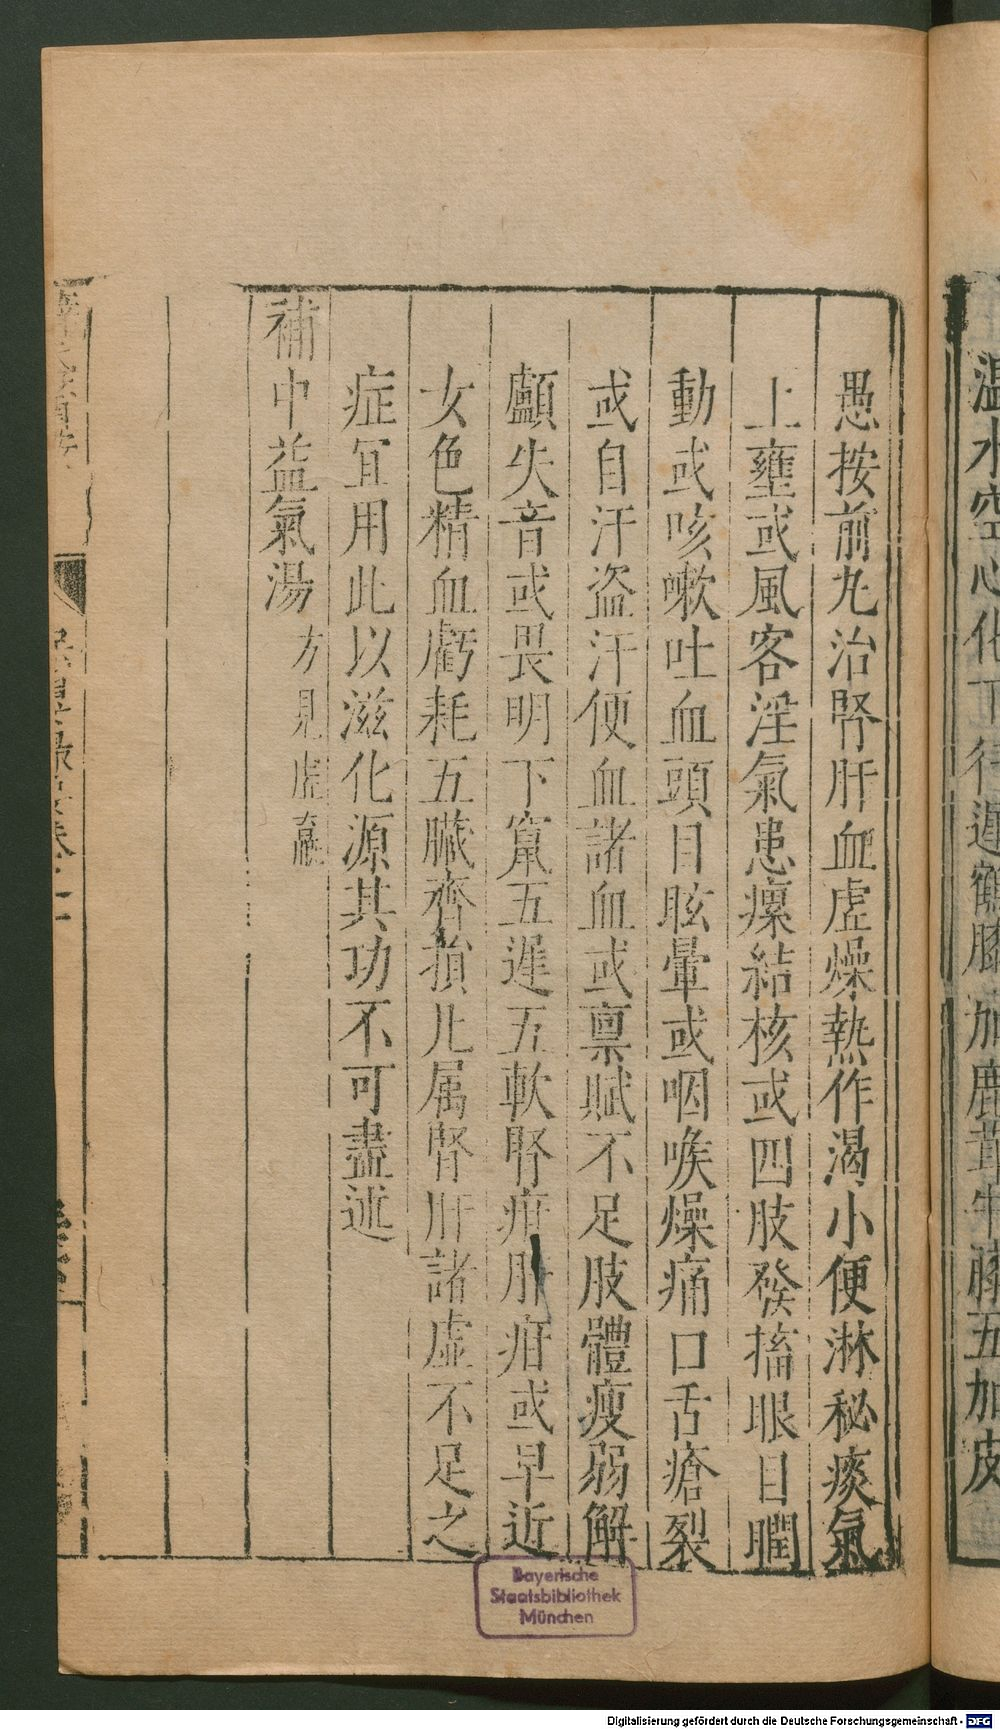 溫水空心化下行遲鶴膝加鹿茸牛膝五加皮
愚按前丸治腎肝血虛燥熱作渴小便淋秘痰氣
上壅或風客淫氣患瘰結核或四肢發搐眼目瞤
動或咳嗽吐血頭目眩暈或咽喉燥痛口舌瘡裂
或自汗盜汗便血諸血或禀賦不足肢體瘦弱解
顱失音或畏明下竄五遲五軟腎疳肝疳或早近
女色精血虧耗五臟齊損凡属腎肝諸虛不足之
症宜用此以滋化源其功不可盡述
補中益氣湯 方見虛羸
Bayerische
Staatsbibliothek
München
Digitalisierung gefördert durch die Deutsche Forschungsgemeinschaft - DFG